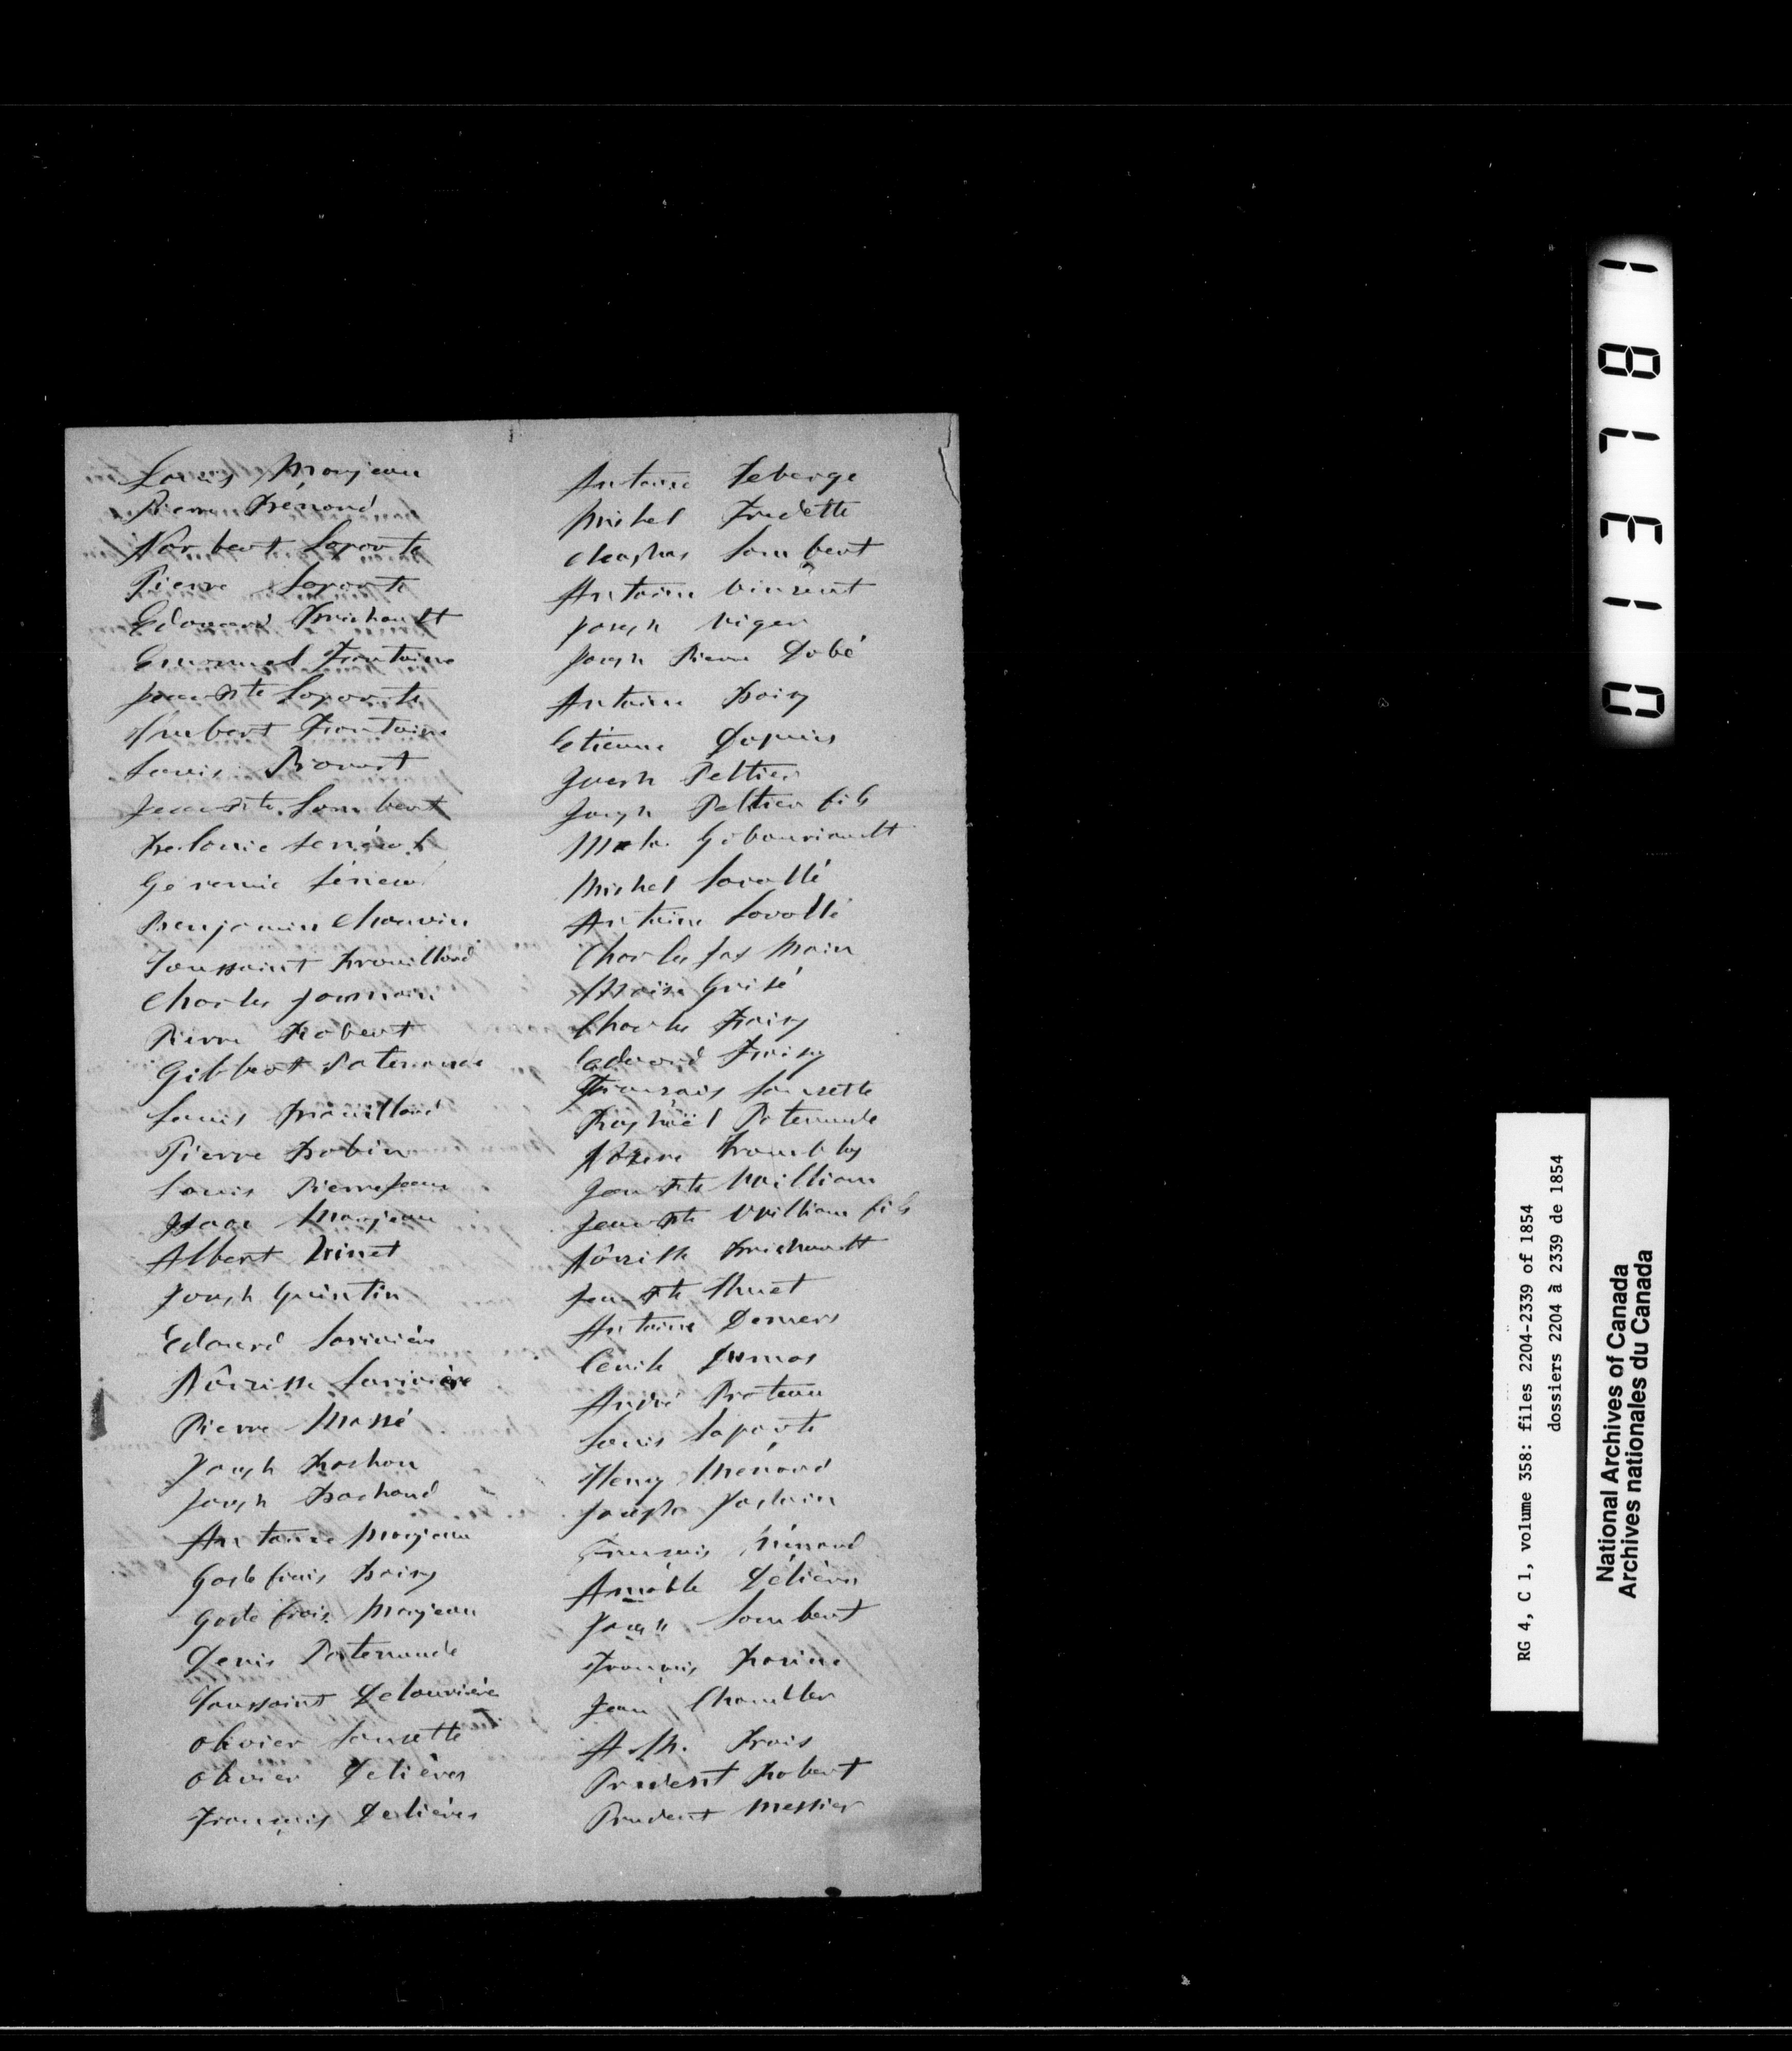 Louis Monjeau
Pierre Frénard
Norbert Laporte
Pierre Laporte
Edouard Brichault
Emanuel Fontaine
Jean Bte Laporte
Humbert Fontaine
Louis Provost
Jean Bte Lambert
Senécal
Geremie Sénécal
Benjamin Chauvin
Toussaint Brouillard
Charles Jasmain
Pierre Robert
Gilbert Patenaude
Louis Brouillard
Pierre Robin
Louis Pierrejean
Isaac Monjeau
Albert Vinet
Joseph Quintin
Edouard Larivière
Nârcisse Larivière
Pierre Massé
Joseph Rochon
Joseph Brochand
Antoine Monjeau
Godefrois Boisy
Godefrois Monjeau
Denis Patenaude
Toussaint Delaurière
Olivier Lausette
Olivier Deliéres
François Desliéres
Antoine Leberge
Michel Fredette
Cleophas Lambert
Antoine Vincent
Joseph Viger
Joseph Pierre Dobé
Antoine Boisy
Etienne Dupuis
Joseph Peltier
Joseph Peltier fils
Gibouriault
Michel Lavallé
Antoine Lavallé
Charles Jas Main
Moïse Grisé
Charles Froisy
Edward Froisy
François Lausette
Raphaël Patenaude
Trombley
Jean Bte William
Jean Bte William fils
Nârcisse Brichault
Jean Bte Huet
Antoine Demers
Cerile Dumas
André Proteau
Louis Laporte
Henry Ménard
Joseph Joslain
François Ménard
Amable Déliéres
Joseph Lambert
François Racine
Jean Chandler
Frois
Prudent Robert
Prudent Messier
0 1 3 7 8 1
RG 4, C 1, volume 358: files 2204-2339 of 1854
dossiers 2204 à 2339 de 1854
National Archives of Canada
Archives nationales du Canada